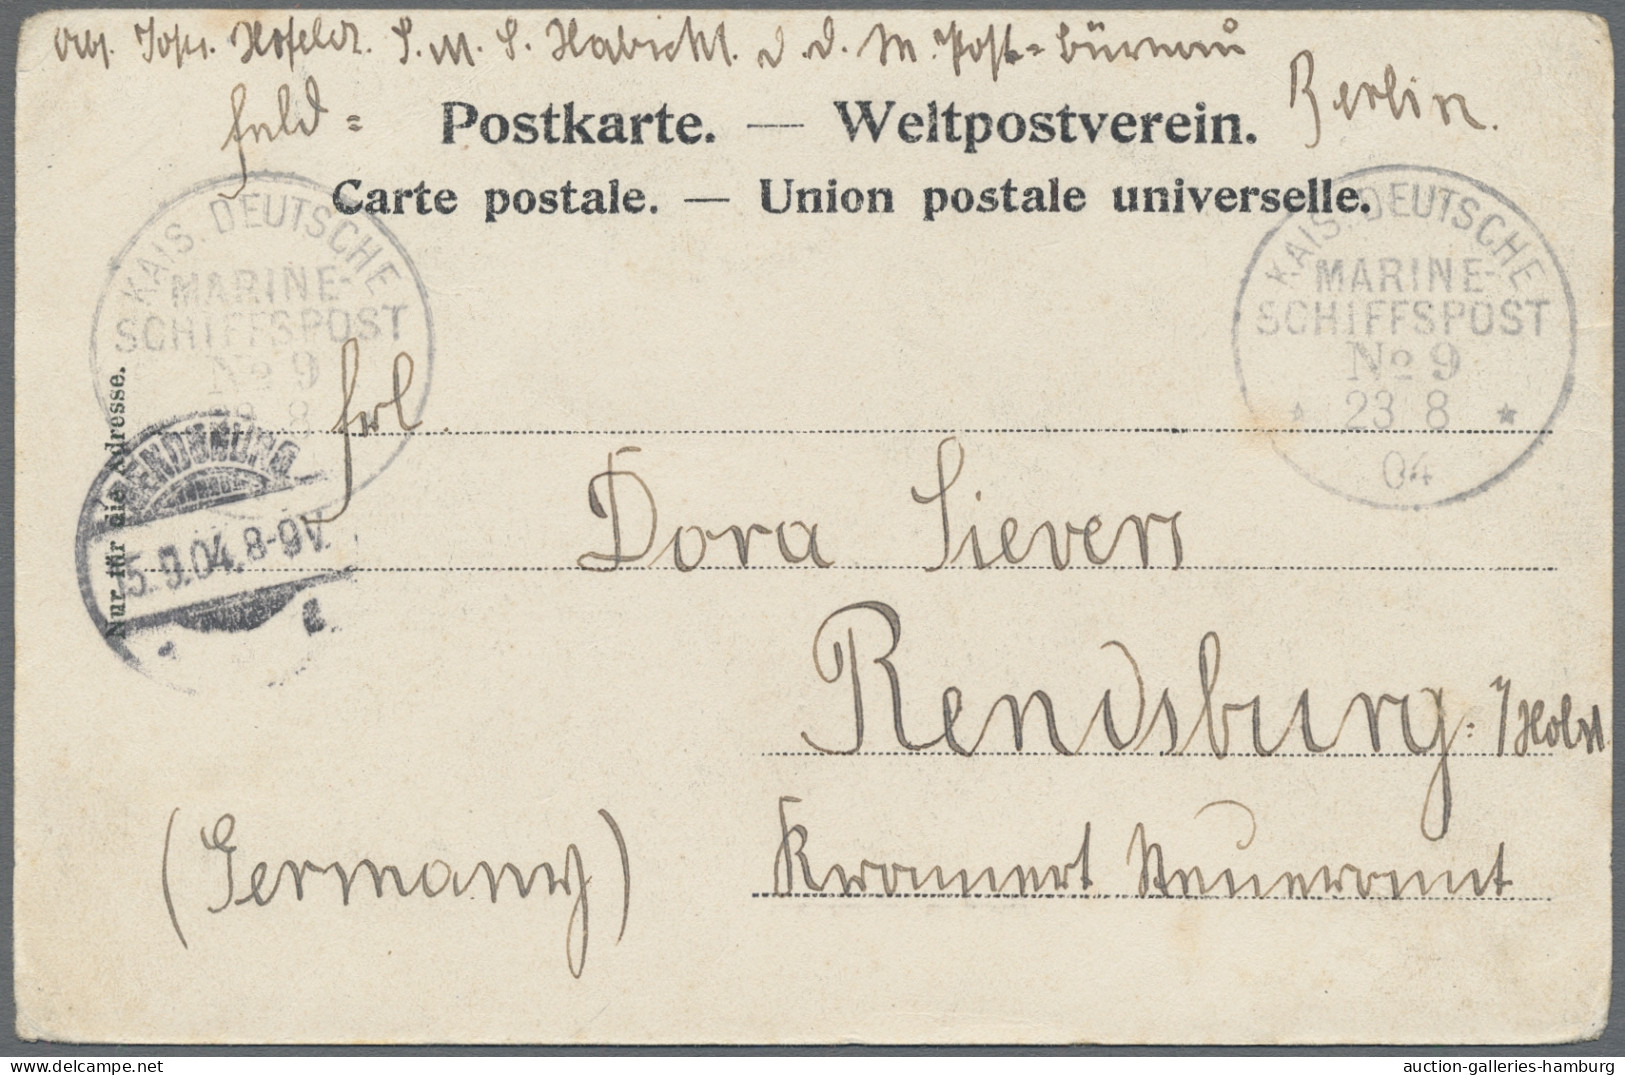 Abs. Hofeldt. S. M. S. Habicht. d. d. M. Post=büreau
Berlin.
Feld=
Postkarte. — Weltpostverein.
Carte postale. — Union postale universelle.
KAIS. DEUTSCHE
MARINE-
SCHIFFSPOST
No 9
KAIS. DEUTSCHE
MARINE-
SCHIFFSPOST
No 9
* 23 8 *
04
Nur für die Adresse.
RENDSBURG.
5.9.04. 8-9V.
Frl.
Dora Sievers
Rendsburg. i/Holst
(Germany)
Steueramt
auction-galleries-hamburg